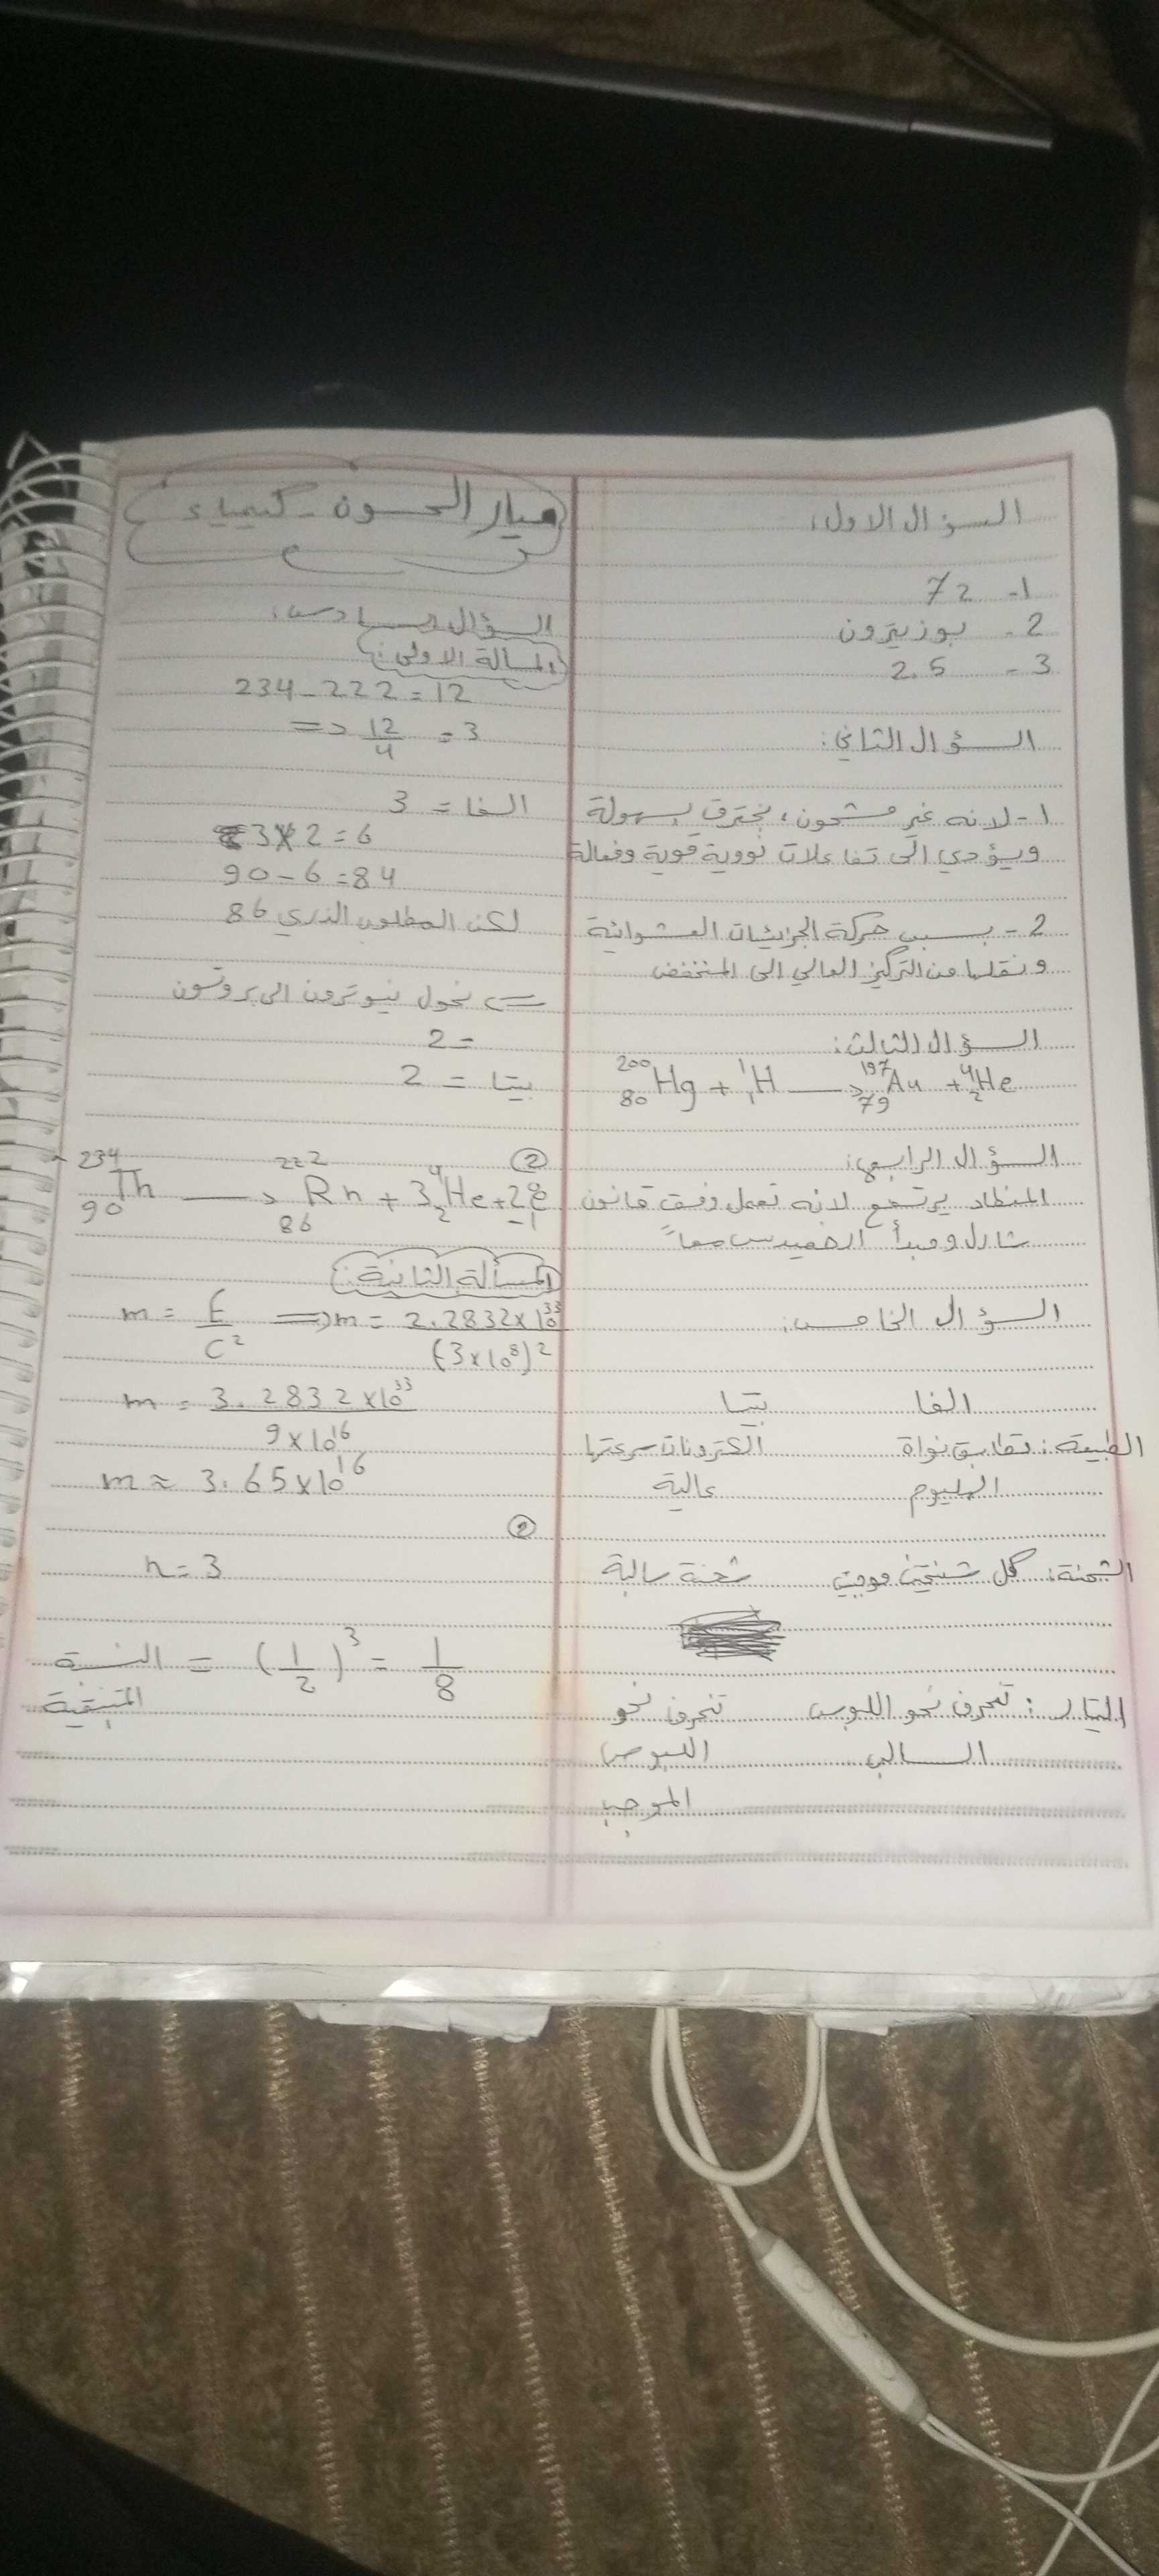 السؤال الاول:
1- 72
2- بوزيترون
3- 2.5
السؤال الثاني:
1- لانه غير مشحون، يخترق بسهولة
ويؤدي الى تفاعلات نووية قوية وفعالة
2- بسبب حركة الجزيئات العشوائية
ونقلها من التركيز العالي الى المنخفض
السؤال الثالث:
²⁰⁰₈₀Hg + ¹₁H → ¹⁹⁷₇₉Au + ⁴₂He
السؤال الرابع:
المنطاد يرتفع لانه تعمل وفق قانون
شارل ومبدأ ارخميدس معاً
السؤال الخامس:
الفا بيتا
الطبيعة: تطابق نواة الكترونات سرعتها
الهليوم عالية
الشحنة: كل شحنتين موجبت شحنة سالبة
التيار: تنحرف نحو اللبوس تنحرف نحو
السالب اللبوس
الموجب
ميار الحسون - كيمياء
السؤال السادس:
المسألة الاولى:
234-222=12
=> 12/4 = 3
الفا = 3
3×2=6
90-6=84
لكن المطلوب الذري 86
<= نحول نيوترون الى بروتون
2 =
بيتا = 2
②
²³⁴₉₀Th → ²²²₈₆Rn + 3⁴₂He + 2⁰₋₁e
المسألة الثانية:
m = E/C² => m = 2.2832×10³³/(3×10⁸)²
m = 3.2832×10³³/9×10¹⁶
m ≈ 3.65×10¹⁶
②
n=3
النسبة = (1/2)³ = 1/8
المتبقية